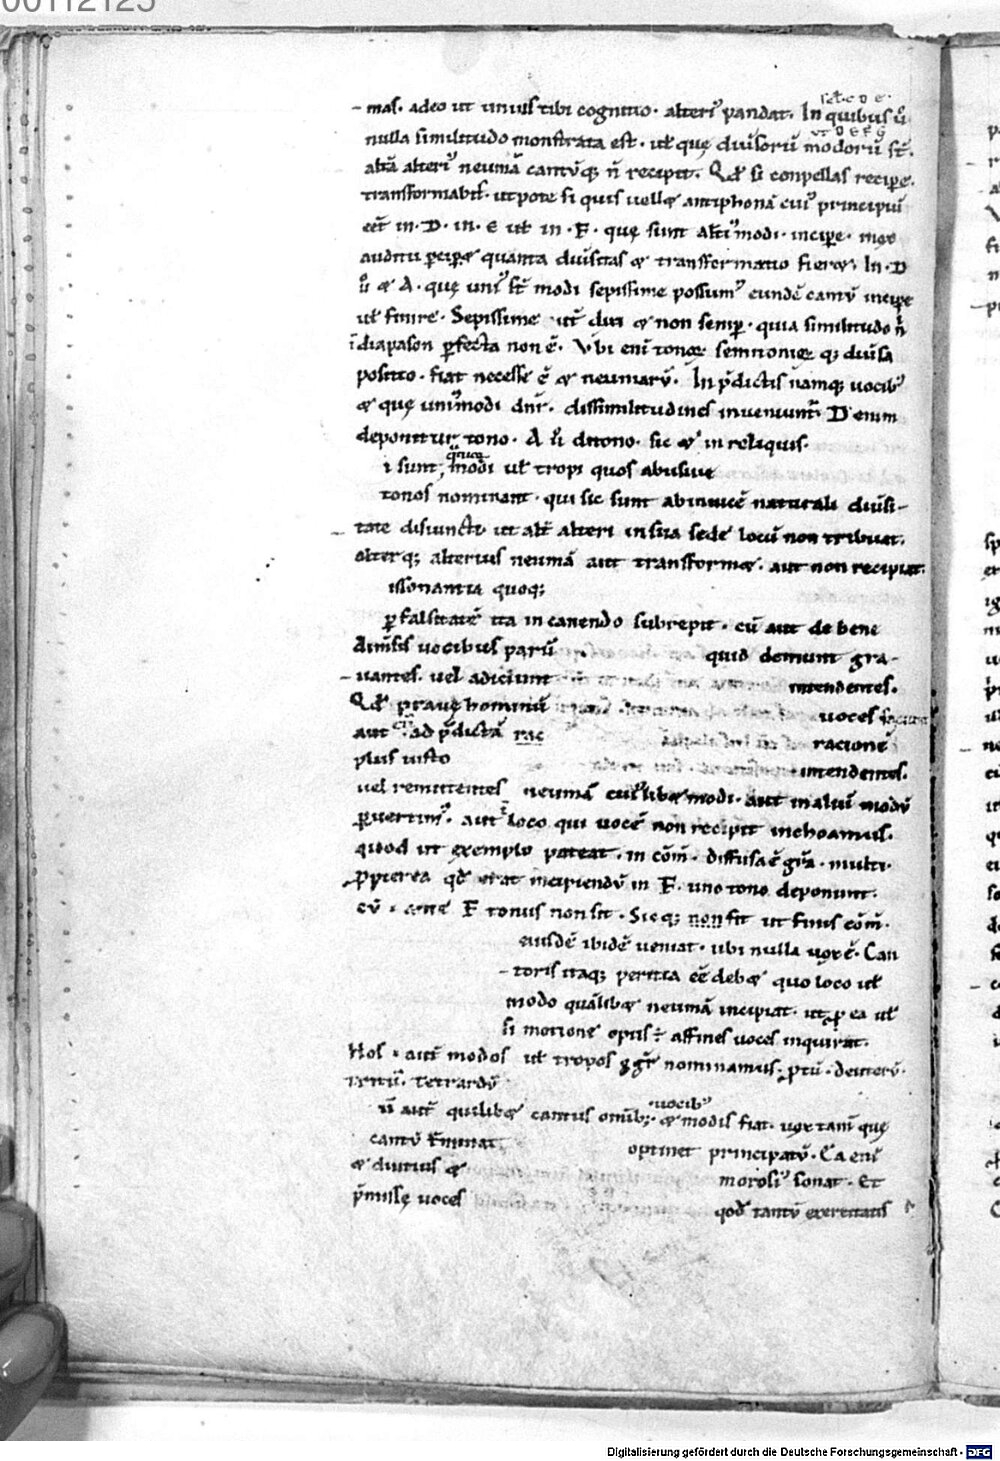 00112125
scł. c D E.
mas. adeo ut unius tibi cognitio. alteriꝰ pandat. In quibus ũ
ut D E F G
nulla similitudo monstrata est. uł quę diuisorũ modorũ sł.
aliã alteriꝰ neumã cantũq; ñ recipit. Qđ si conpellas recipe.
transformabiť. utpote si quis uellet antiphonã cuiꝰ principiũ
eẽt in. D. in. E uł in. F. quę sunt alťiꝰ modi. incipe. mox
auditu pcipet quanta diuisitas & transformatio fieret. In. D
ũ & A. quę uniꝰ sť modi sepissime possumꝰ eundẽ cantũ incipe
uł finire. Sepissime uť dixi & non semp. quia similitudo ñ
ĩ diapason pfecta non ẽ. Vbi eni tonoꝝ semitonioꝝ q; diuisa
positio. fiat necesse ẽ & neumarũ. In p̄dictis namq; uocibꝰ
& quę uniꝰmodi dñr. dissimilitudines inueniunť. D enim
deponitur tono. A ũ ditono. sic & in reliquis.
i sunt modi uł tropi quos abusiue
tonos nominant. qui sic sunt abinuicẽ naturali diuisi-
tate disiuncti. ut alť alteri in sua sede locũ non tribuat.
alterq; alterius neumã aut transformet. aut non recipiat.
issonantia quoq;
p falsitatẽ ita in canendo subrepit. cũ aut de bene
dimẽsis uocibus parũ quid demunt gra-
uantes. uel adiciunt intendentes.
Qđ prauę hominũ uoces
aut ad p̄dictã rac racionẽ
plus iusto intendentes.
uel remittentes neumã cuiꝰlibet modi. aut in aliũ modũ
puertimꝰ. aut loco qui uocẽ non recipit inchoamus.
quod ut exemplo pateat. in cõm. diffusa ẽ gr̃a. multi.
pp̱terea qđ erat incipiendũ in F. uno tono deponunt.
cũ ante F tonus non sit. Sicq; non fit ut finis cõm.
eiusdẽ ibidẽ ueniat. ubi nulla uox ẽ. Can
toris itaq; peritia eẽ debet quo loco uł
modo quãlibet neumã incipiat. ut p ea uł
si motione opus ÷ affines uoces inquirat.
Hos auť modos uł tropos ggr̃ nominamus. p̱tũ. deuterũ.
tritũ. Tetrardũ
uocibꝰ
ũ auť quilibet cantus omĩb; & modis fiat. uox tam̃ quę
cantũ tĩminat, optinet principatũ. Ea eni
& diutius & morosiꝰ sonat. Et
p̱missę uoces qođ tantũ exercitatis
Digitalisierung gefördert durch die Deutsche Forschungsgemeinschaft - DFG